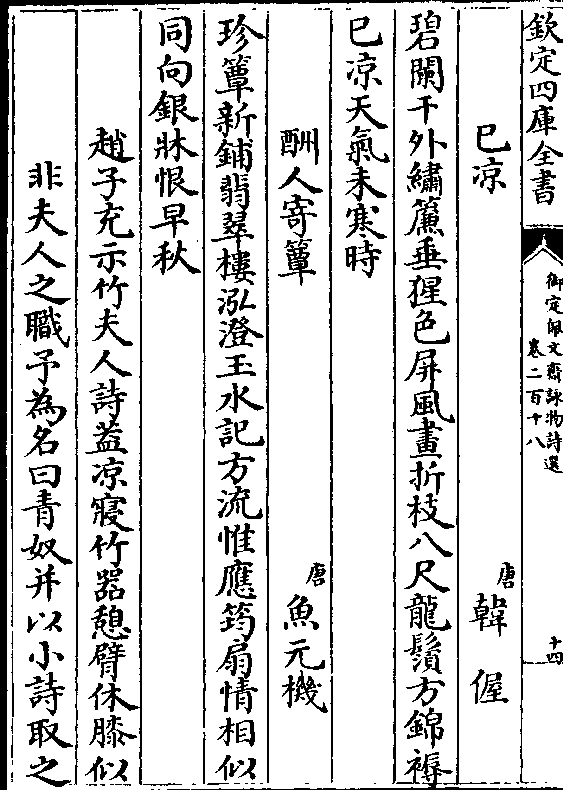 欽定四庫全書
御定佩文齋詠物詩選
卷二百十八
十四
已凉
唐
韓偓
碧闌干外繡簾垂猩色屏風畫折枝八尺龍鬚方錦褥
已凉天氣未寒時
酬人寄簟
唐
魚元機
珍簟新鋪翡翠樓泓澄玉水記方流惟應筠扇情相似
同向銀牀恨早秋
趙子充示竹夫人詩葢凉寢竹器憩臂休膝似
非夫人之職予為名曰青奴并以小詩取之